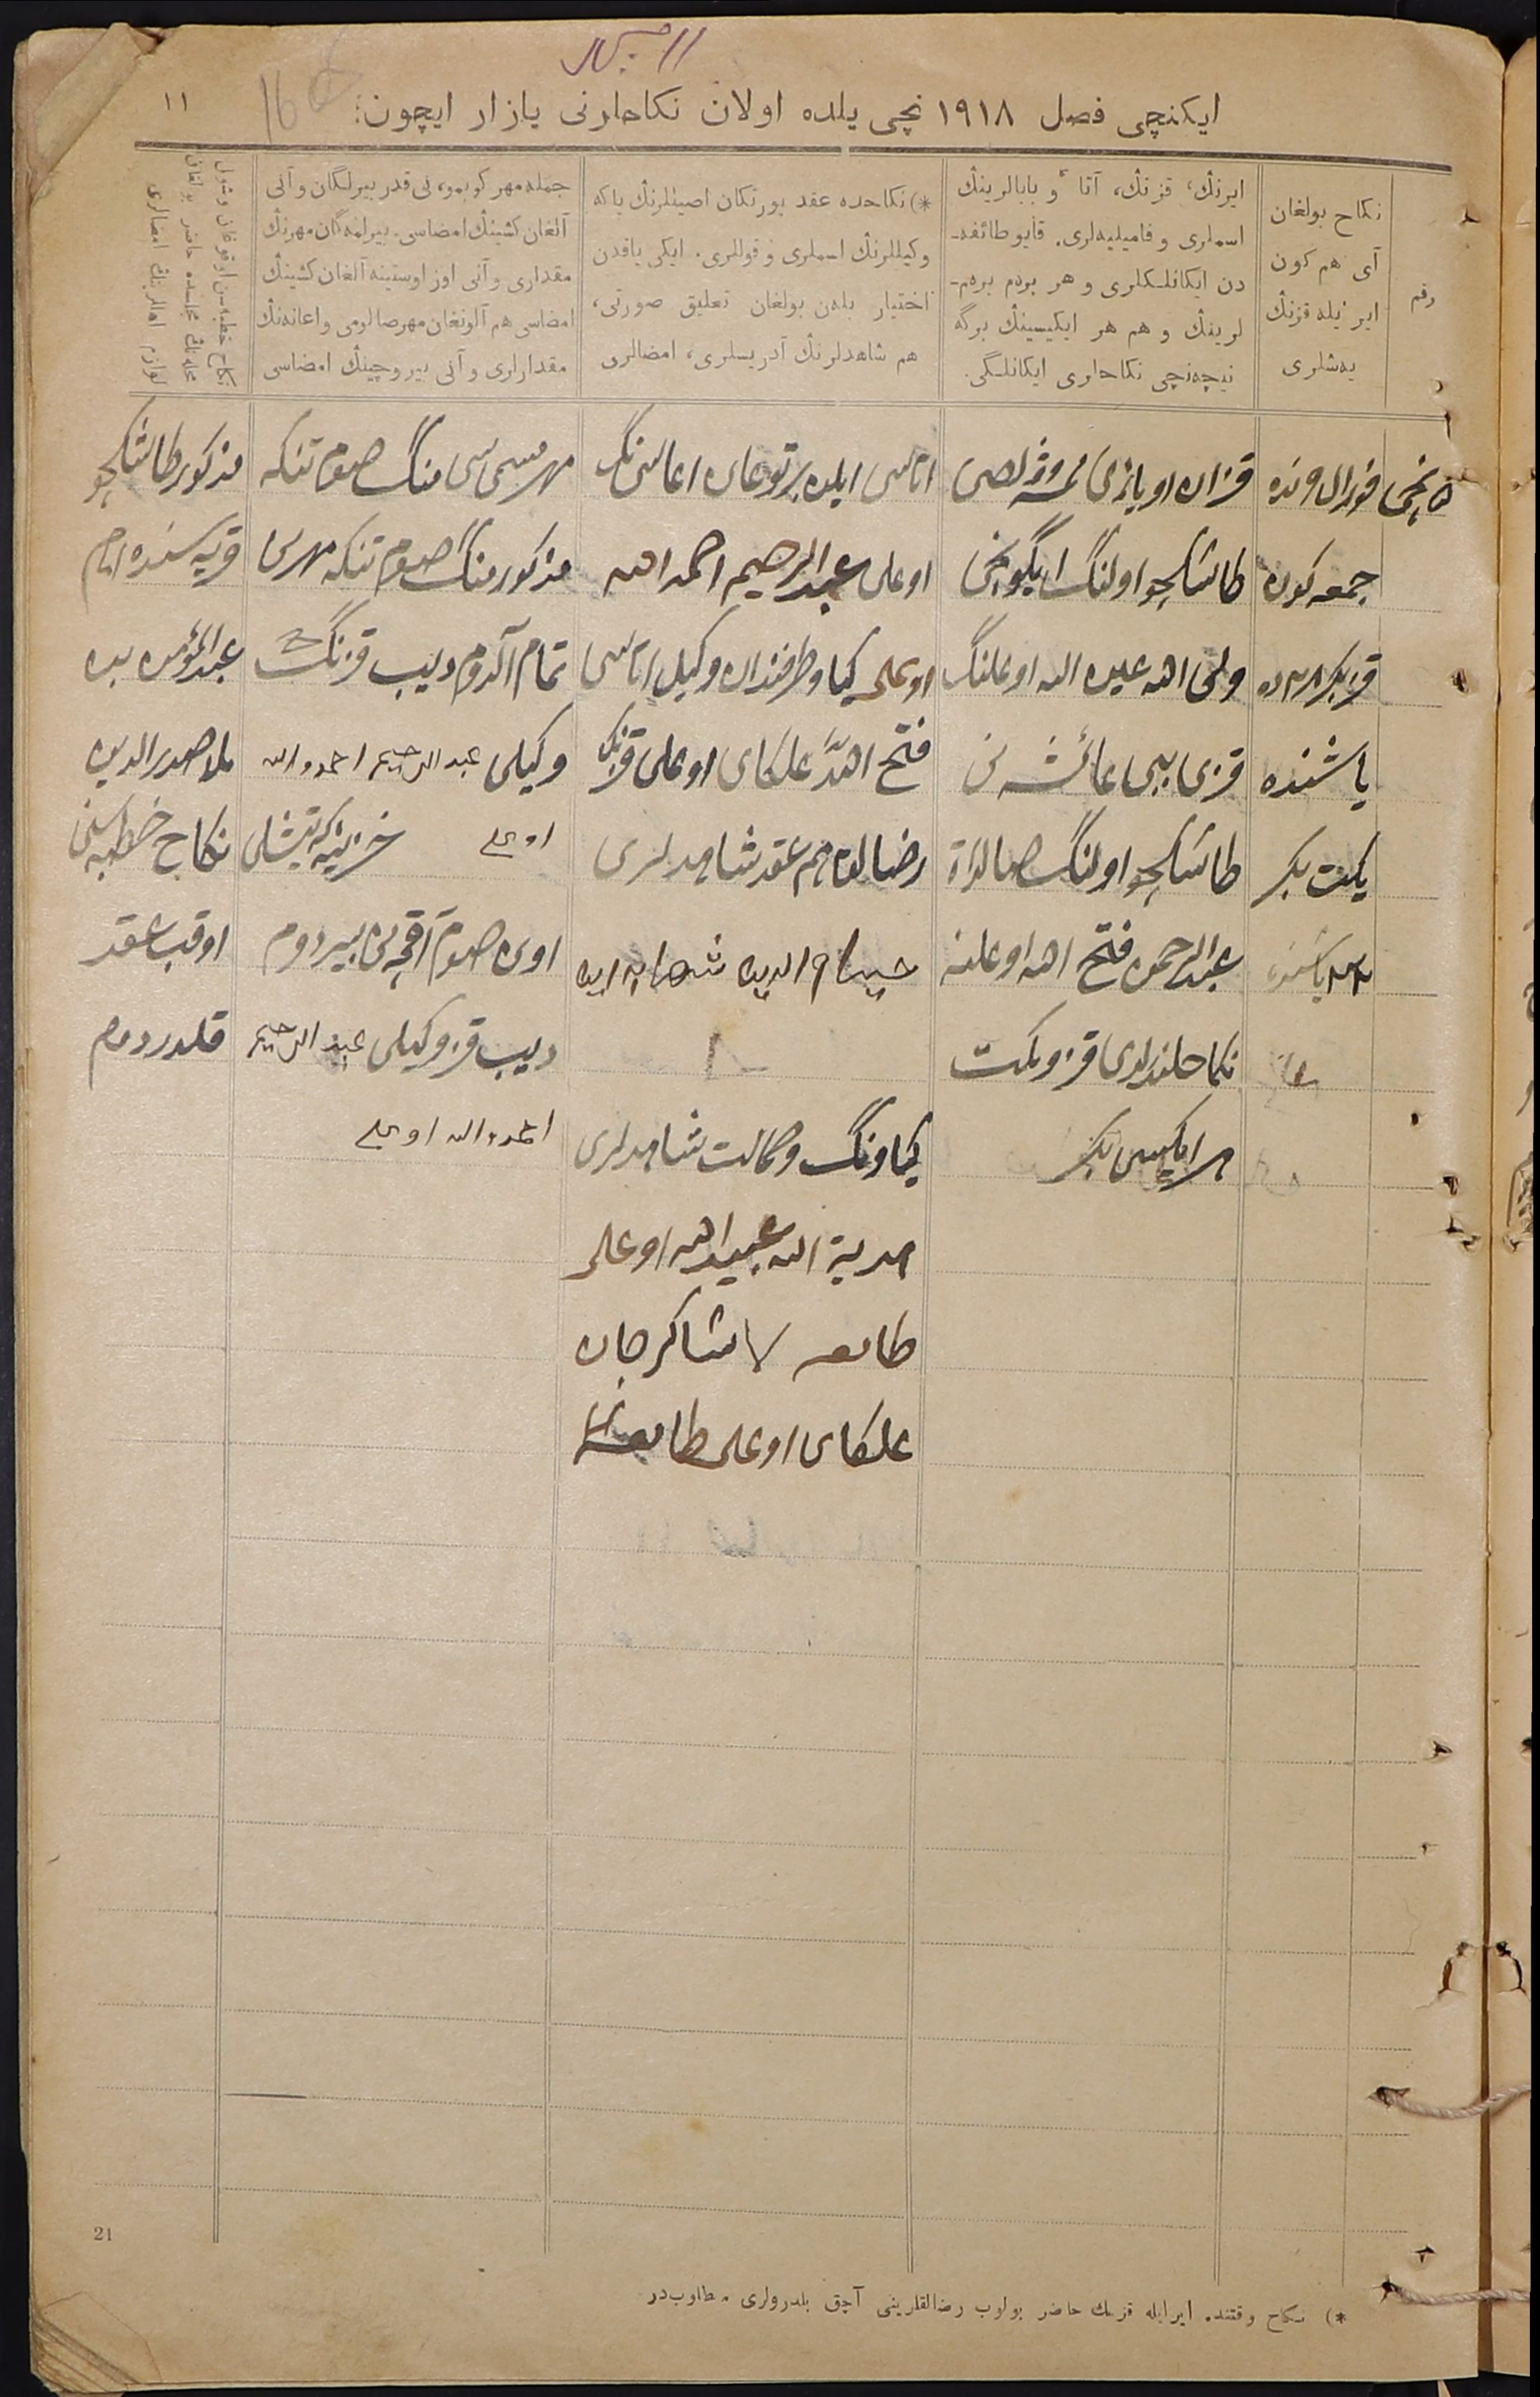 ایكنچی فصل ۱۹۱۸ نچی یلده اولان نكاحلرنی یازار ایچون:
۱۱
رقم
نكاح بولغان
آی هم كون
ایر ئیله قزنڭ
یەشلری
ایرنڭ، قزنڭ، آتا و بابالرینڭ
اسملری و فامیلیەلری. قایو طائفه-
دن ایكانلكلری و هر برەم برەم-
لرینڭ و هم هر ایكیسینڭ برگە
نیچەنچی نكاحلری ایكانلگی.
*) نكاحده عقد یورتكان اصیللرنڭ یاكه
وكیللرنڭ اسملری و قوللری. ایكی یاقدن
اختیار بلەن بولغان تعلیق صورتی،
هم شاهدلرنڭ آدریسلری، امضالری
جمله مهر كوبمو، نی قدر بیرلگان و آنی
آلغان كشینڭ امضاسی. بیرلمەگان مهرنڭ
مقداری و آنی اوز اوستینه آلغان كشینڭ
امضاسی هم آلونغان مهر صالومی و اعانەنڭ
مقدارلری و آنی بیروچینڭ امضاسی
نكاح خطبەسن اوقوغان وشول
محلەنڭ مجلسده حاضر بولغان
لوازم اهللرینڭ امضالری
۵ نچی فورال وندە
جمعه كون
قز بكر ۲۸ دە
یاشندە
یكت بكر
۳۲ یاشندە
قزان اویازی
طاشكچو اولنڭ ایگونچی
ولی الله علیم الله اوغلنڭ
قزی بیبی عائشه نی
طاشكچو اولنڭ
عبدالرحمن فتح الله اوغلنه
نكاحلندرلدی قز و یكت
هر ایكیسی بكر
اتاسی ایله بر توغان اغاسی نڭ
اوغلی عبدالرحیم احمدالله
اوغلی كیاو طرفندان وكیل اتاسی
فتح الله علكای اوغلی قزنڭ
رضالغن هم عقد شاهدلری
حسام الدین شهاب الدین
كیاونڭ وكالت شاهدلری
هدیة الله عبیدالله اوغلی
طامغه شاكرجان
علكای اوغلی طامغه
مهر مسمی سی منڭ صوم تنكه
مذكور منڭ صوم تنكه مهرنی
تمام آلدوم دیب قزنڭ
وكیلی عبدالرحیم احمدالله
اوغلی
اون صوم اقچه نی بیردوم
دیب قز وكیلی عبدالرحیم
احمدالله اوغلی
مذكور طاشكچو
قریه سنده امام
عبدالمؤمن بن
ملا صدرالدین
نكاح خطبه سنی
اوقب عقد
قلدردوم
21
*) نكاح وقتند. ایر ایله قزنڭ حاضر بولوب رضالقلرینی آچق بلدرولری مطلوب در